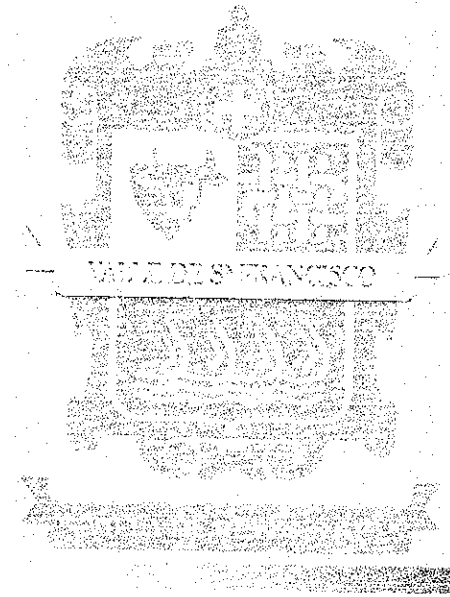 VALLE DE Sⁿ FRANCISCO